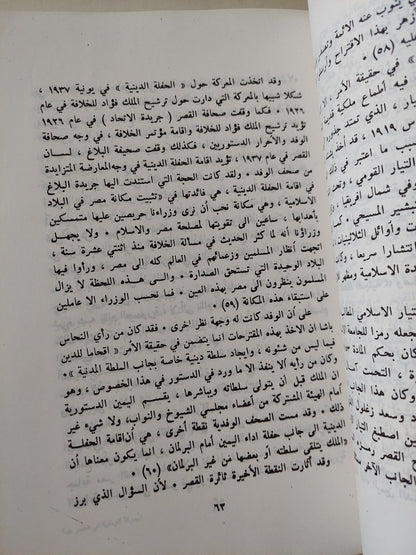 وقد اتخذت المعركة حول « الحفلة الدينية » في يونية ١٩٣٧ ،
شكلا شبيها بالمعركة التي دارت حول ترشيح الملك فؤاد للخلافة في عام
١٩٢٦ . فكما وقفت صحافة القصر ( جريدة الاتحاد ) في عام ١٩٢٦
تؤيد ترشيح الملك فؤاد للخلافة واقامة مؤتمر الخلافة ، في وجه صحافة
الوفد والاحرار الدستوريين ، فكذلك وقفت صحيفة البلاغ ، لسان
القصر في عام ١٩٣٧ ، تؤيد اقامة الحفلة الدينية في وجه المعارضة المتزايدة
من صحف الوفد . ولقد كانت الحجة التي استندت اليها جريدة البلاغ
في اقامة الحفلة الدينية ، هي فائدتها في « تثبيت مكانة مصر في البلاد
الاسلامية ، وهي مكانة نحب أن نرى وزراءنا حريصين عليها متمسكين
بأهدابها ، ساعين الى تقويتها لمصلحة مصر والاسلام . ولا يجهل
وزراؤنا أنه لما كثر الحديث في مسألة الخلافة منذ اثنتي عشرة سنة ،
اتجهت أنظار المسلمين وزعمائهم في العالم كله الى مصر ، ورأوا فيها
البلاد الوحيدة التي تستحق الصدارة . والى هذه اللحظة لا يزال
المسلمون ينظرون الى مصر بهذه العين . فما نحسب الوزراء الا عاملين
على استبقاء هذه المكانة (٥٩) .
على أن الوفد كانت له وجهة نظر اخرى . فقد كان من رأي النحاس
باشا ان الاخذ بهذه المقترحات انما يتضمن في حقيقة الأمر « اقحاما للدين
فيما ليس من شئونه ، وايجاد سلطة دينية خاصة بجانب السلطة المدنية » .
وكان من رأيه ألا ينفذ الا ما ورد في الدستور في هذا الخصوص ، وهو
ان الملك قبل أن يتولى سلطاته ويباشرها ، يقسم اليمين الدستورية
أمام الهيئة المشتركة من أعضاء مجلسي الشيوخ والنواب، ولا شيء غير
ذلك . وقد مست الصحف الوفدية نقطة أخرى ، هي أن اقامة الحفلة
الدينية الى جانب حفلة اداء اليمين أمام البرلمان ، انما يكون معناها أن
«الملك يتلقى سلطته أو بعضها من غير البرلمان» (٦٠) .
وقد أثارت النقطة الأخيرة ثائرة القصر . لأن السؤال الذي برز
٦٣